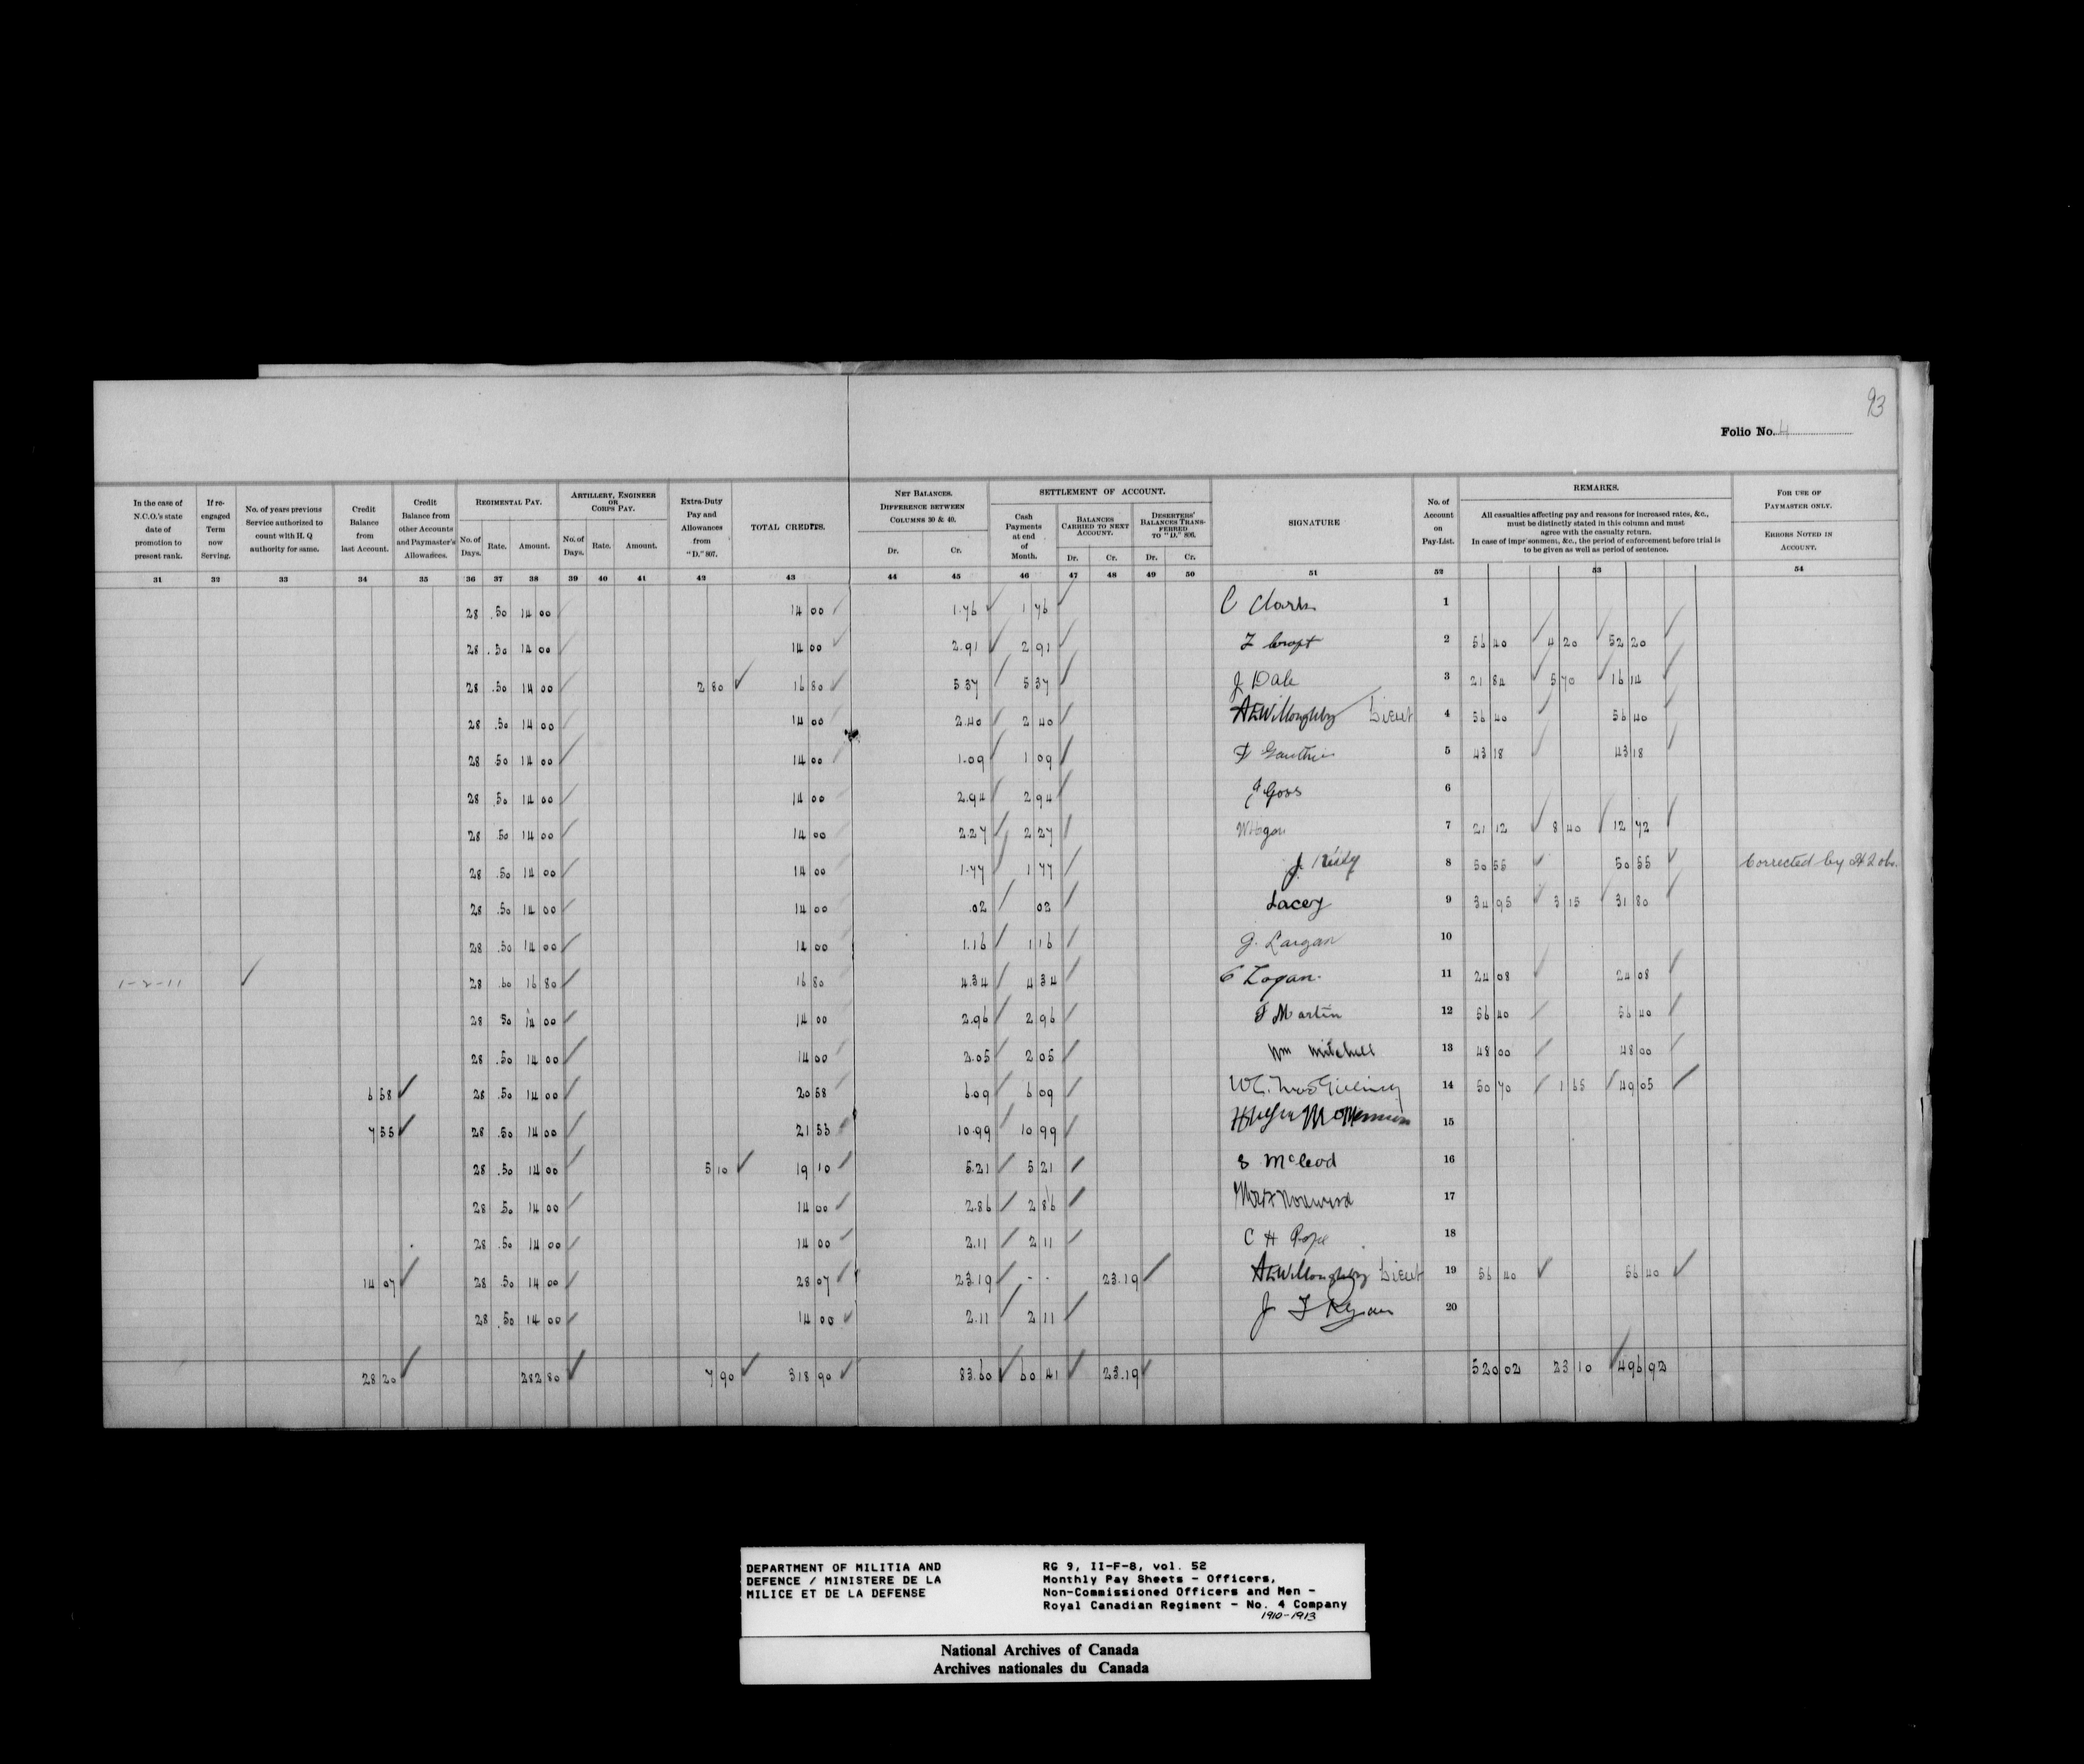 93
Folio No. 4
In the case of N.C.O.'s state date of promotion to present rank.
If re-engaged Term now Serving.
No. of years previous Service authorized to count with H. Q authority for same.
Credit Balance from last Account.
Credit Balance from other Accounts and Paymaster's Allowances.
REGIMENTAL PAY.
No. of Days. Rate. Amount.
ARTILLERY, ENGINEER OR CORPS PAY.
No. of Days. Rate. Amount.
Extra-Duty Pay and Allowances from "D." 807.
TOTAL CREDITS.
NET BALANCES. DIFFERENCE BETWEEN COLUMNS 30 & 40.
Dr. Cr.
SETTLEMENT OF ACCOUNT.
Cash Payments at end of Month.
BALANCES CARRIED TO NEXT ACCOUNT.
Dr. Cr.
DESERTERS' BALANCES TRANSFERRED TO "D." 806.
Dr. Cr.
SIGNATURE
No. of Account on Pay-List.
REMARKS.
All casualties affecting pay and reasons for increased rates, &c., must be distinctly stated in this column and must agree with the casualty return.
In case of imprisonment, &c., the period of enforcement before trial is to be given as well as period of sentence.
FOR USE OF PAYMASTER ONLY.
ERRORS NOTED IN ACCOUNT.
31 32 33 34 35 36 37 38 39 40 41 42 43 44 45 46 47 48 49 50 51 52 53 54
28 .50 14 00 14 00 1.76 1 76 C Clark 1
28 .50 14 00 14 00 2.91 2 91 Croft 2 56 40 4 20 52 20
28 .50 14 00 2 80 16 80 5 37 5 37 J Dale 3 21 84 5 70 16 14
28 .50 14 00 14 00 2.40 2 40 Willoughby Lieut 4 56 40 56 40
28 50 14 00 14 00 1.09 1 09 Gauthier 5 43 18 43 18
28 .50 14 00 14 00 2.94 2 94 Goss 6
28 50 14 00 14 00 2.27 2 27 W Hogan 7 21 12 8 40 12 72
28 .50 14 00 14 00 1.77 1 77 J 8 50 55 50 55 Corrected by
28 .50 14 00 14 00 .02 02 Lacey 9 34 95 3 15 31 80
28 .50 14 00 14 00 1.16 1 16 J. Largan 10
1-2-11 28 .60 16 80 16 80 4.34 4 34 C Logan. 11 24 08 24 08
28 50 14 00 14 00 2.96 2 96 Martin 12 56 40 56 40
28 .50 14 00 14 00 2.05 2 05 Wm Mitchell 13 48 00 48 00
6 58 28 .50 14 00 20 58 6.09 6 09 14 50 70 1 65 49 05
7 55 28 .50 14 00 21 55 10.99 10 99 15
28 .50 14 00 5 10 19 10 5.21 5 21 S McLeod 16
28 .50 14 00 14 00 2.86 2 86 17
28 .50 14 00 14 00 2.11 2 11 C H Pope 18
14 07 28 .50 14 00 28 07 23.19 - - 23.19 Willoughby Lieut 19 56 40 56 40
28 .50 14 00 14 00 2.11 2 11 J F Ryan 20
28 20 282 80 7 90 318 90 83.60 60 41 23.19 520 02 23 10 496 92
DEPARTMENT OF MILITIA AND
DEFENCE / MINISTERE DE LA
MILICE ET DE LA DEFENSE
RG 9, II-F-8, vol. 52
Monthly Pay Sheets - Officers,
Non-Commissioned Officers and Men -
Royal Canadian Regiment - No. 4 Company
1910-1913
National Archives of Canada
Archives nationales du Canada